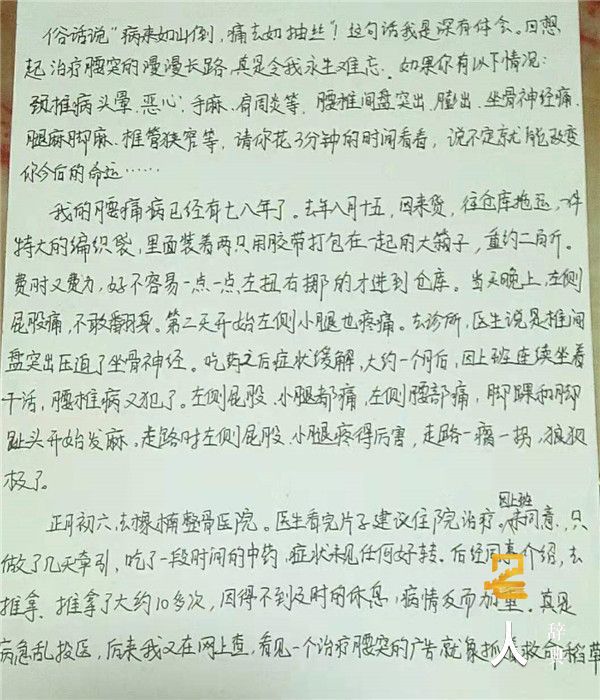 俗话说“病来如山倒，痛去如抽丝”！这句话我是深有体会。回想
起治疗腰突的漫漫长路，真是令我永生难忘。如果你有以下情况：
颈椎病头晕、恶心、手麻、肩周炎等，腰椎间盘突出、膨出、坐骨神经痛、
腿麻脚麻、椎管狭窄等，请你花3分钟的时间看看，说不定就能改变
你今后的命运……
我的腰痛病已经有七八年了。去年八月十五，因来货，往仓库拖运一件
特大的编织袋，里面装着两只用胶带打包在一起的大箱子，重约二百斤。
费时又费力，好不容易一点一点左扭右挪的才进到仓库。当天晚上，左侧
屁股痛，不敢翻身。第二天开始左侧小腿也疼痛。去诊所，医生说是椎间
盘突出压迫了坐骨神经。吃药之后症状缓解，大约一个月后，因上班连续坐着
干活，腰椎病又犯了。左侧屁股、小腿都痛，左侧腰部痛，脚踝和脚
趾头开始发麻。走路时左侧屁股、小腿疼得厉害，走路一瘸一拐，狼狈
极了。
正月初六，去橡楠整骨医院。医生看完片子建议住院治疗。因上班未同意，只
做了几天牵引，吃了一段时间的中药，症状未见任何好转。后经同事介绍，去
推拿。推拿了大约10多次，因得不到及时的休息，病情反而加重。真是
病急乱投医，后来我又在网上查，看见一个治疗腰突的广告就象抓住救命稻草
人 辞典